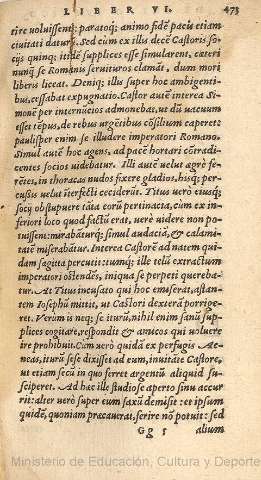 LIBER VI. 473
tire voluissent: paratoq; animo fidẽ pacũs etiam
ciuitati daturũ. Sed cum ex illis decẽ Castoris so-
cijs quinq; itidẽ supplices esse simularent, cæteri
nunq̃ se Romanis seruituros clamãt, dum mori
liberis liceat. Deniq; illis super hoc ambigenti-
bus, cessabat expugnatio. Castor autẽ interea Si-
monẽ per internũcios admonebat, ut dũ vacuum
esset tẽpus, de rebus urgẽtibus cõsilium caperet:
paulisper enim se illudere imperatori Romano.
Simul autẽ hoc agens, ad pacẽ hortari cõtradi-
centes socios uidebatur. Illi autẽ uelut ægrè fe-
rẽtes, in thoracas nudos fixere gladios, hisq; per-
cussis uelut iterfecti ceciderũt. Titus uerò eiusq;
socij obstupuere tãta eorũ pertinacia, cum ex in-
feriori loco quod factũ erat, uerè uidere non po-
tuissent: mirabãturq; simul audaciã, & calami-
tatẽ miserabãtur. Interea Castorẽ ad natem qui-
dam sagitta percutit: tumq; ille telũ extractum
imperatori ostendẽs, iniqua se perpeti quereba-
tur. At Titus incusato qui hoc emiserat, astan-
tem Iosephũ mittit, ut Castori dexterã porrige-
ret. Verùm is neq; se iturũ, nihil enim sanũ sup-
plices cogitare, respondit & amicos qui uoluere
ire prohibuit. Cum verò quidã ex perfugis Ae-
neas, iturũ se se dixisset ad eum, inuitate Castore,
ut etiam secũ in quo ferret argentũ aliquid su-
sciperet. Ad hæc ille studiose aperto sinu accur
rit: alter verò super eum saxũ demisit: et ipsum
quidẽ, quoniam præcauerat, ferire nõ potuit: sed
Gg 5 alium
Ministerio de Educación, Cultura y Deporte